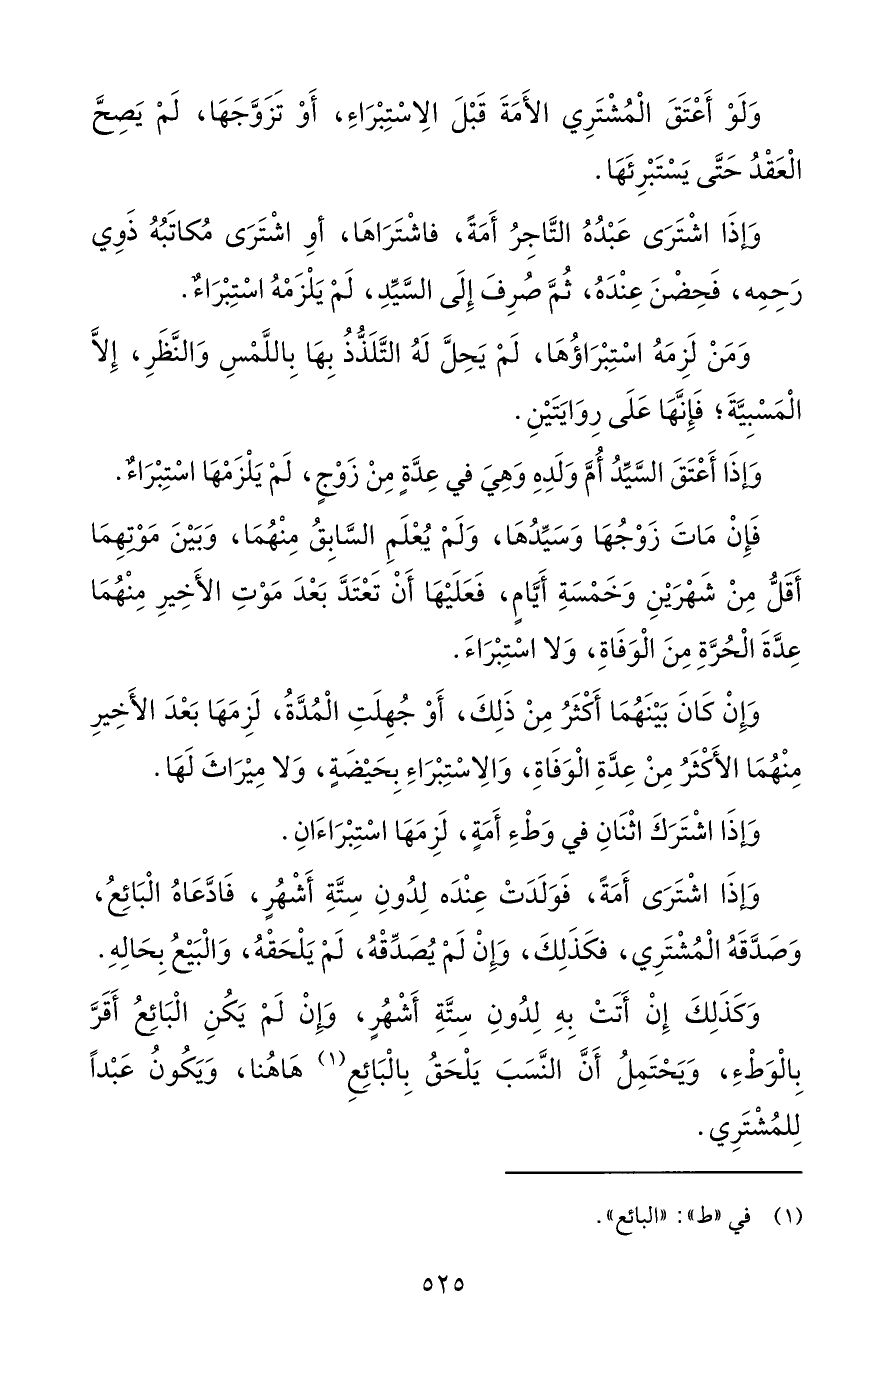 وَلَوْ أَعْتَقَ الْمُشْتَرِي الأَمَةَ قَبْلَ الِاسْتِبْرَاءِ، أَوْ تَزَوَّجَهَا، لَمْ يَصِحَّ
الْعَقْدُ حَتَّى يَسْتَبْرِئَهَا.
وَإِذَا اشْتَرَى عَبْدُهُ التَّاجِرُ أَمَةً، فاشْتَرَاهَا، أوِ اشْتَرَى مُكاتَبُهُ ذَوِي
رَحِمِه، فَحِضْنَ عِنْدَهُ، ثُمَّ صُرِفَ إِلَى السَّيِّدِ، لَمْ يَلْزَمْهُ اسْتِبْرَاءٌ.
وَمَنْ لَزِمَهُ اسْتِبْرَاؤُهَا، لَمْ يَحِلَّ لَهُ التَّلَذُّذُ بِهَا بِاللَّمْسِ وَالنَّظَرِ، إِلاَّ
الْمَسْبِيَّةَ؛ فَإِنَّهَا عَلَى رِوَايَتَيْنِ.
وَإِذَا أَعْتَقَ السَّيِّدُ أُمَّ وَلَدِهِ وَهِيَ في عِدَّةٍ مِنْ زَوْجٍ، لَمْ يَلْزَمْهَا اسْتِبْرَاءٌ.
فَإِنْ مَاتَ زَوْجُهَا وَسَيِّدُهَا، وَلَمْ يُعْلَمِ السَّابِقُ مِنْهُمَا، وَبَيْنَ مَوْتِهِمَا
أَقَلُّ مِنْ شَهْرَيْنِ وَخَمْسَةِ أَيَّامٍ، فَعَلَيْهَا أَنْ تَعْتَدَّ بَعْدَ مَوْتِ الأَخِيرِ مِنْهُمَا
عِدَّةَ الْحُرَّةِ مِنَ الْوَفَاةِ، وَلا اسْتِبْرَاءَ.
وَإِنْ كَانَ بَيْنَهُمَا أَكْثَرُ مِنْ ذَلِكَ، أَوْ جُهِلَتِ الْمُدَّةُ، لَزِمَهَا بَعْدَ الأَخِيرِ
مِنْهُمَا الأَكْثَرُ مِنْ عِدَّةِ الْوَفَاةِ، وَالِاسْتِبْرَاءِ بِحَيْضَةٍ، وَلا مِيْرَاثَ لَهَا.
وَإِذَا اشْتَرَكَ اثْنَانِ في وَطْءِ أَمَةٍ، لَزِمَهَا اسْتِبْرَاءَانِ.
وَإِذَا اشْتَرَى أَمَةً، فَوَلَدَتْ عِنْدَه لِدُونِ سِتَّةِ أَشْهُرٍ، فَادَّعَاهُ الْبَائِعُ،
وَصَدَّقَهُ الْمُشْتَرِي، فكَذَلِكَ، وَإِنْ لَمْ يُصَدِّقْهُ، لَمْ يَلْحَقْهُ، وَالْبَيْعُ بِحَالِهِ.
وَكَذَلِكَ إِنْ أَتَتْ بِهِ لِدُونِ سِتَّةِ أَشْهُرٍ، وَإِنْ لَمْ يَكُنِ الْبَائِعُ أَقَرَّ
بِالْوَطْءِ، وَيَحْتَمِلُ أَنَّ النَّسَبَ يَلْحَقُ بِالْبَائِعِ(١) هَاهُنا، وَيَكُونُ عَبْداً
لِلمُشْتَرِي.
(١) في «ط»: «البائع».
٥٢٥